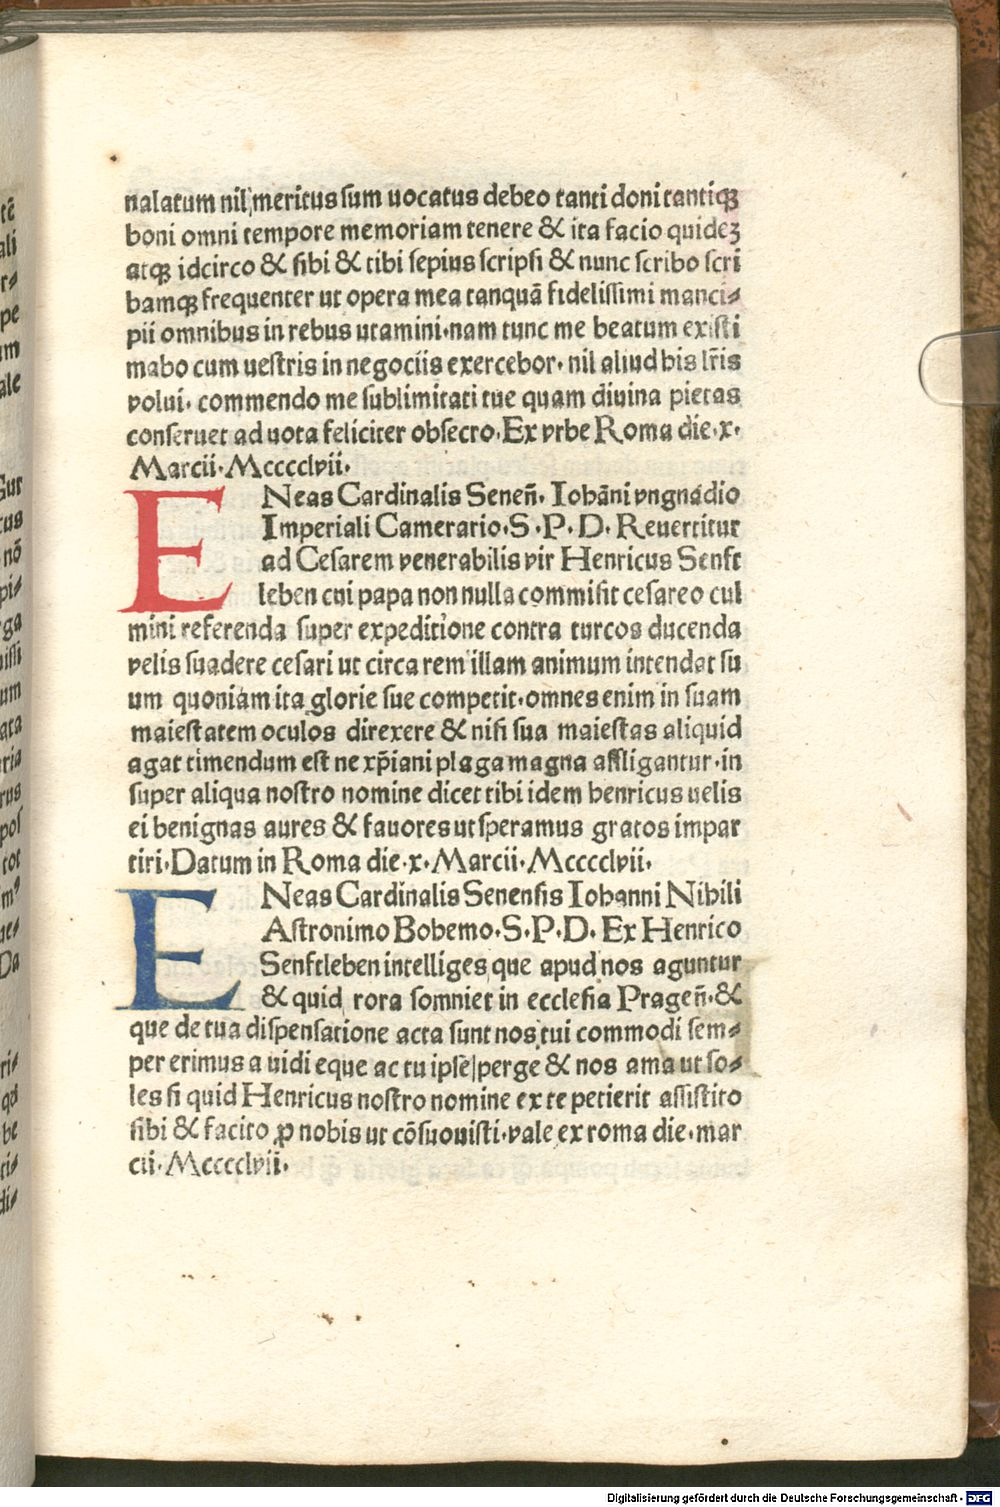 nalatum nil meritus sum uocatus debeo tanti doni tantiqꝫ
boni omni tempore memoriam tenere & ita facio quideꝫ
atqꝫ idcirco & sibi & tibi sepius scripsi & nunc scribo scri
bamqꝫ frequenter ut opera mea tanquã fidelissimi manci⸗
pii omnibus in rebus utamini·nam tunc me beatum existi
mabo cum uestris in negociis exercebor· nil aliud his lr̃is
volui· commendo me sublimitati tue quam diuina pietas
conseruet ad uota feliciter obsecro·Ex vrbe Roma die·x·
Marcii·Mcccclvii·
ENeas Cardinalis Seneñ· Iohãni vngnadio
Imperiali Camerario·S·P·D· Reuertitur
ad Cesarem venerabilis vir Henricus Senft
leben cui papa non nulla commisit cesareo cul
mini referenda super expeditione contra turcos ducenda
velis suadere cesari ut circa rem illam animum intendat su
um quoniam ita glorie sue competit·omnes enim in suam
maiestatem oculos direxere & nisi sua maiestas aliquid
agat timendum est ne xp̃iani plaga magna affligantur·in
super aliqua nostro nomine dicet tibi idem henricus uelis
ei benignas aures & fauores ut speramus gratos impar
tiri·Datum in Roma die·x·Marcii·Mcccclvii·
ENeas Cardinalis Senensis Iohanni Nihili
Astronimo Bohemo·S·P·D· Ex Henrico
Senftleben intelliges que apud nos aguntur
& quid rora somniet in ecclesia Prageñ·&
que de tua dispensatione acta sunt nos tui commodi sem⸗
per erimus a uidi eque ac tu ipse perge & nos ama ut so⸗
les si quid Henricus nostro nomine ex te petierit assistito
sibi & facito ꝓ nobis ut cõsuouisti·vale ex roma die·mar
cii·Mcccclvii·
Digitalisierung gefördert durch die Deutsche Forschungsgemeinschaft - DFG